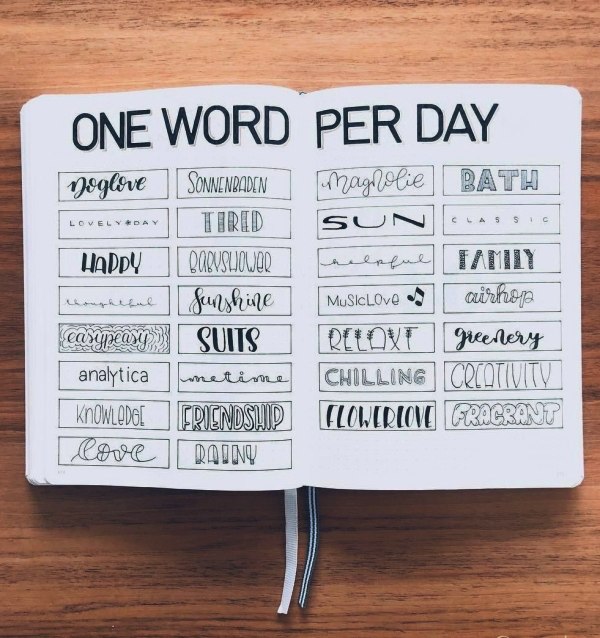 ONE WORD PER DAY
Doglove
SONNENBADEN
LOVELY*DAY
TIRED
HAPPY
BABYSHOWER
thoughtful
Sunshine
easypeasy
SUITS
analytica
metime
KNOWLEDGE
FRIENDSHIP
Love
RAINY
Magnolie
BATH
SUN
CLASSIC
helpful
FAMILY
MUSICLOVE
airhop
RELAXT
greenery
CHILLING
CREATIVITY
FLOWERLOVE
FRAGRANT